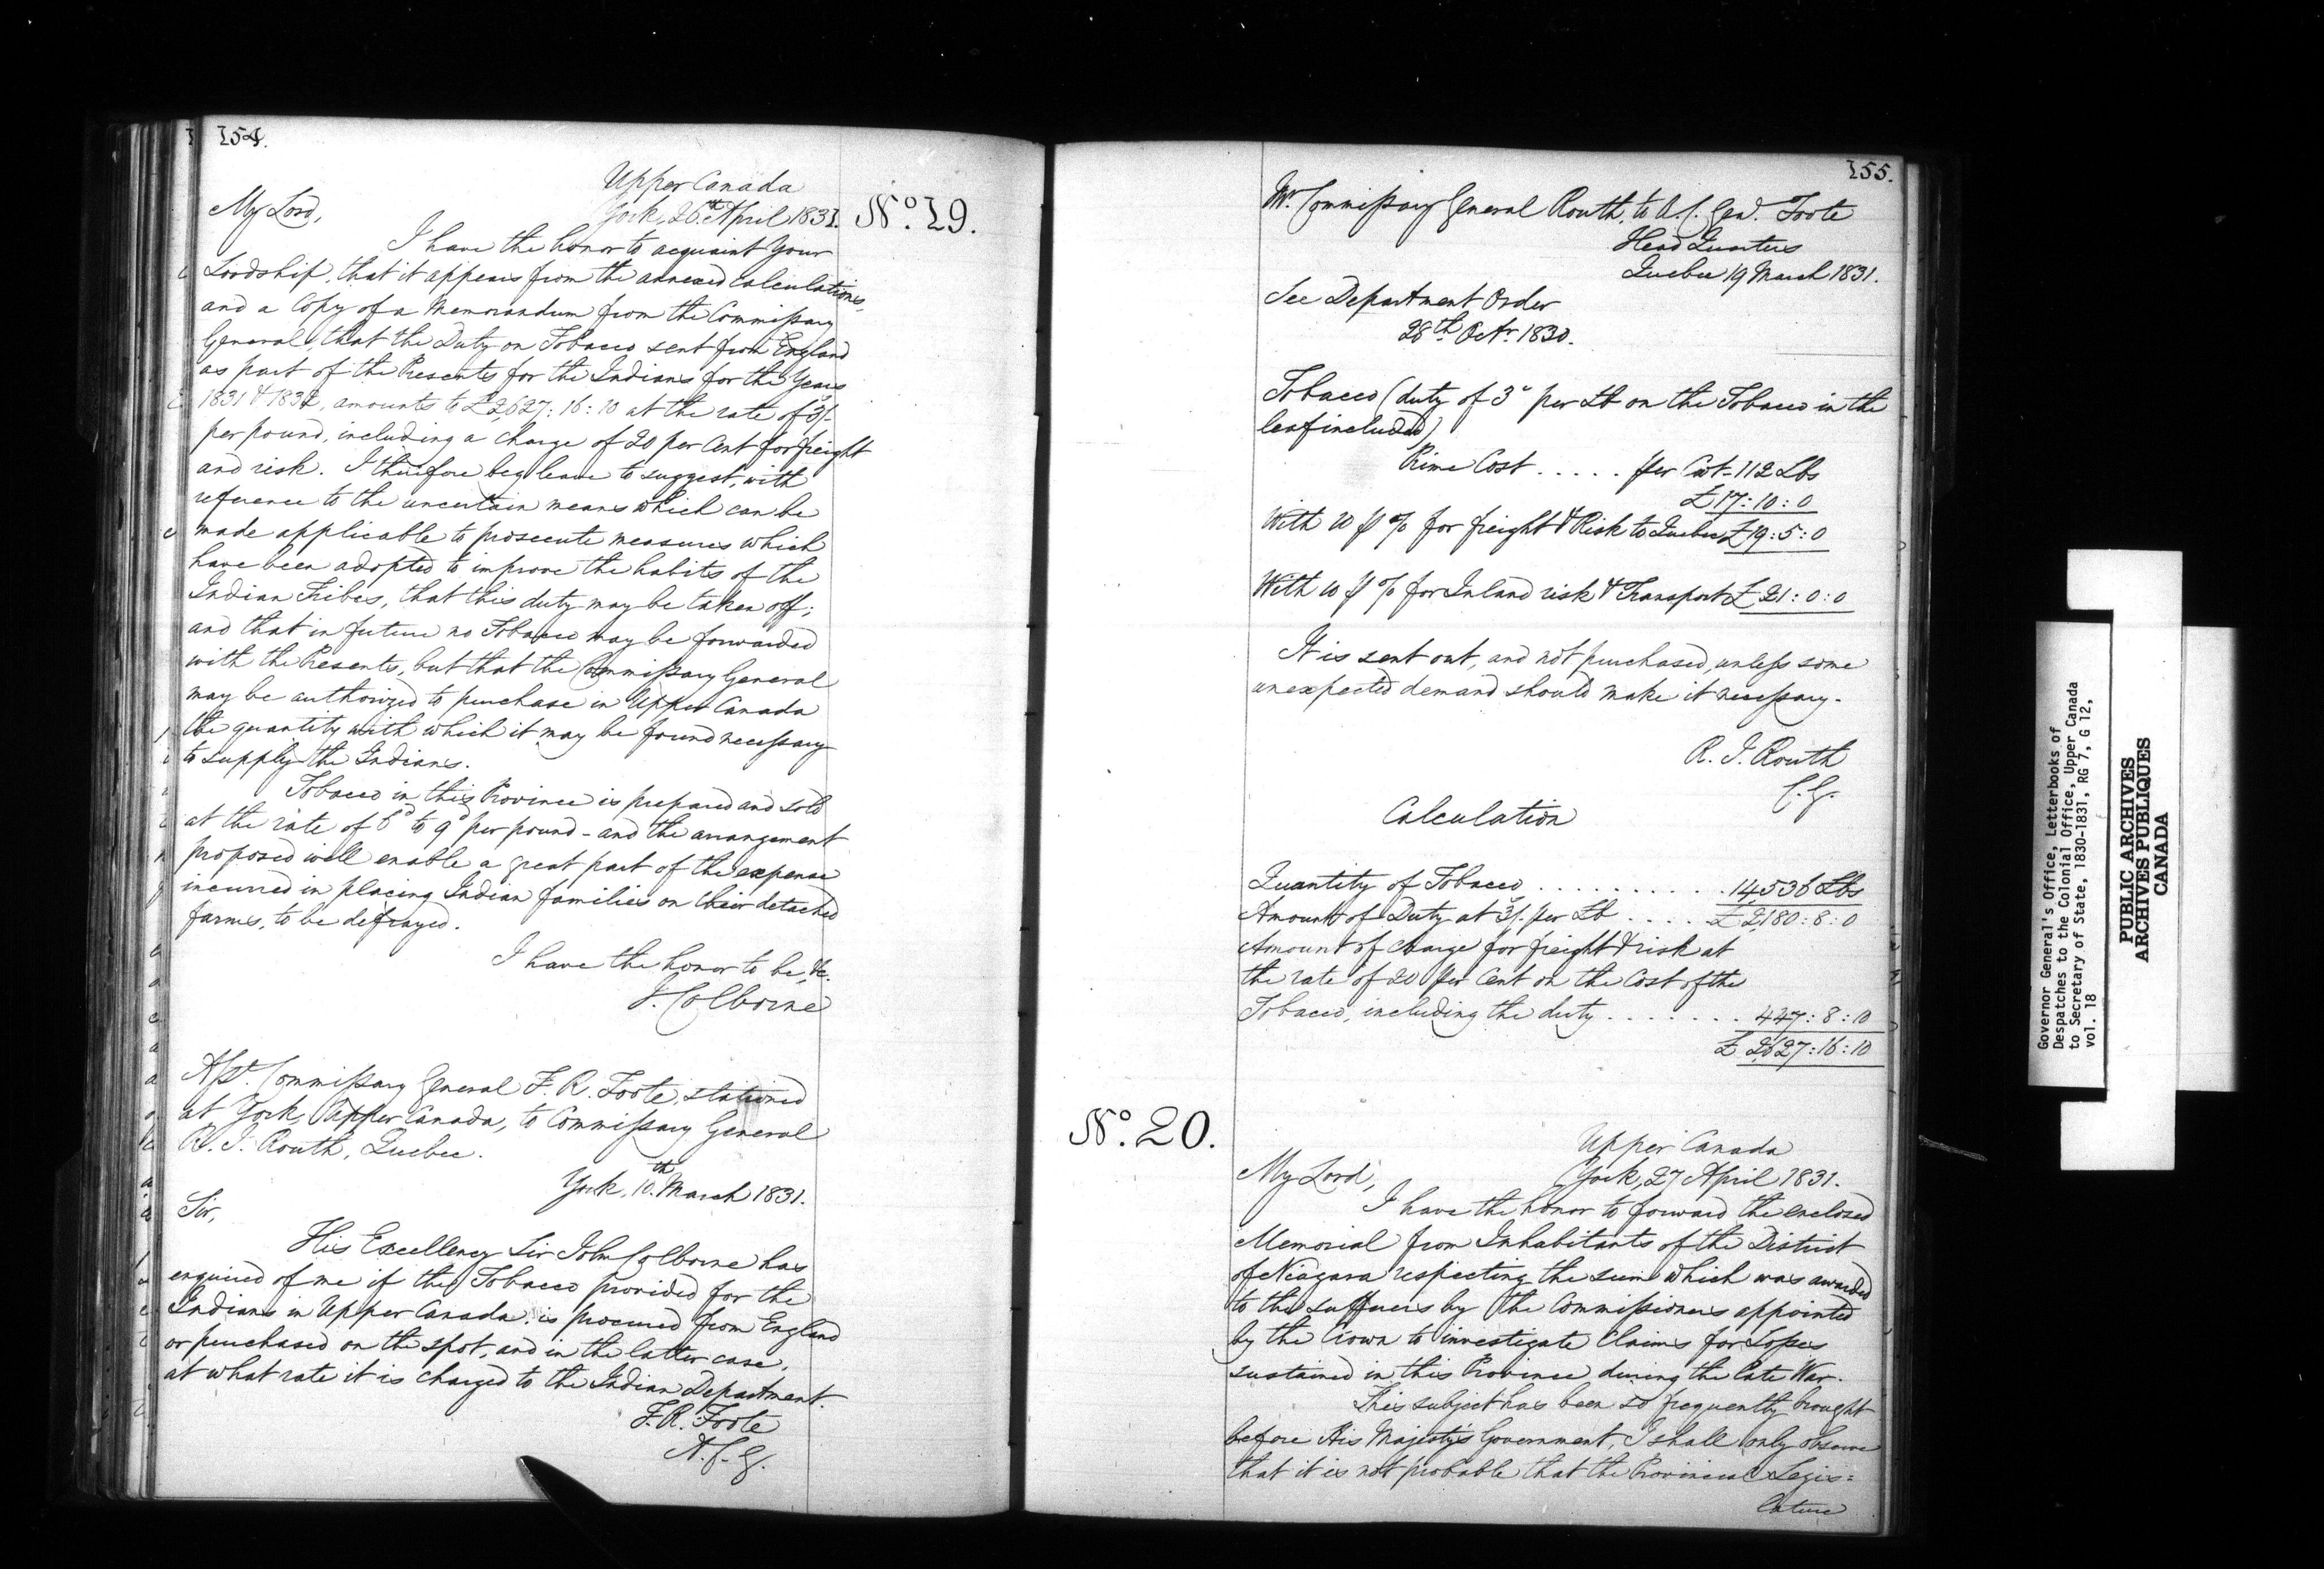 154.
Upper Canada
York, 26th April 1831.
No. 19.
My Lord,
I have the honor to acquaint Your
Lordship, that it appears from the annexed Calculations,
and a Copy of a Memorandum from the Commissary
General, that the Duty on Tobacco sent from England
as part of the Presents for the Indians for the Years
1831 & 1832, amounts to £2,627:16:10 at the rate of 3/-
per pound, including a charge of 20 per Cent for freight
and risk. I therefore beg leave to suggest, with
reference to the uncertain means which can be
made applicable to prosecute measures which
have been adopted to improve the habits of the
Indian Tribes, that this duty may be taken off;
and that in future no Tobacco may be forwarded
with the Presents, but that the Commissary General
may be authorized to purchase in Upper Canada
the quantity with which it may be found necessary
to supply the Indians.
Tobacco in this Province is prepared and sold
at the rate of 6d to 9d per pound - and the arrangement
proposed will enable a great part of the expense
incurred in placing Indian families on their detached
farms, to be defrayed.
I have the honor to be, &c.
J. Colborne
Asst. Commissary General F. R. Foote, stationed
at York, Upper Canada, to Commissary General
R. I. Routh, Quebec.
York, 10th March 1831.
Sir,
His Excellency Sir John Colborne has
enquired of me if the Tobacco provided for the
Indians in Upper Canada, is procured from England
or purchased on the spot, and in the latter case,
at what rate it is charged to the Indian Department.
F. R. Foote
A. C. G.
155.
Mr. Commissary General Routh, to A. C. Genl. Foote
Head Quarters
Quebec 19 March 1831.
See Department Order
28th Octr. 1830.
Tobacco (duty of 3s per Lb on the Tobacco in the
leaf included)
Prime Cost ..... per Cwt = 112 Lbs
£17:10:0
With 10 p % for freight & Risk to Quebec £19:5:0
With 10 p % for Inland risk & Transport £21:0:0
It is sent out, and not purchased, unless some
unexpected demand should make it necessary.
R. I. Routh
C. G.
Calculation
Quantity of Tobacco ........... 14,536 Lbs
Amount of Duty at 3/- per Lb .... £2,180:8:0
Amount of charge for freight & risk at
the rate of 20 per Cent on the Cost of the
Tobacco, including the duty ....... 447:8:10
£2,627:16:10
No. 20.
Upper Canada
York, 27 April 1831.
My Lord,
I have the honor to forward the enclosed
Memorial from Inhabitants of the District
of Niagara respecting the sum which was awarded
to the sufferers by the Commissioners appointed
by the Crown to investigate Claims for Losses
sustained in this Province during the late War.
This subject has been so frequently brought
before His Majesty's Government, I shall only observe
that it is not probable that the Provincial Legis=
lature
Governor General's Office, Letterbooks of
Despatches to the Colonial Office, Upper Canada
to Secretary of State, 1830-1831, RG 7, G 12,
vol. 18
PUBLIC ARCHIVES
ARCHIVES PUBLIQUES
CANADA